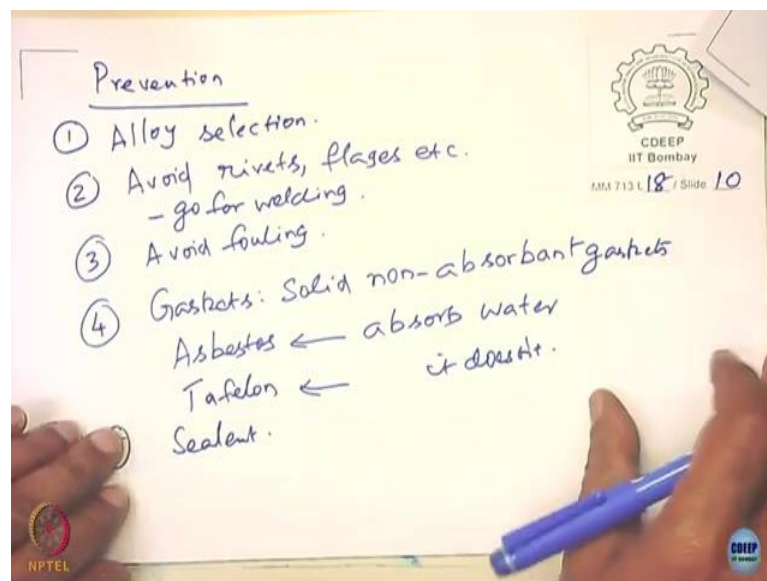 Prevention
① Alloy selection.
② Avoid rivets, flages etc.
- go for welding.
③ Avoid fouling.
④ Gaskets: Solid non-absorbant gaskets
Asbestos ← absorb water
Tafelon ← it doesn't.
Sealent.
CDEEP
IIT Bombay
MM 713 L 18 / Slide 10
NPTEL
CDEEP
IIT BOMBAY